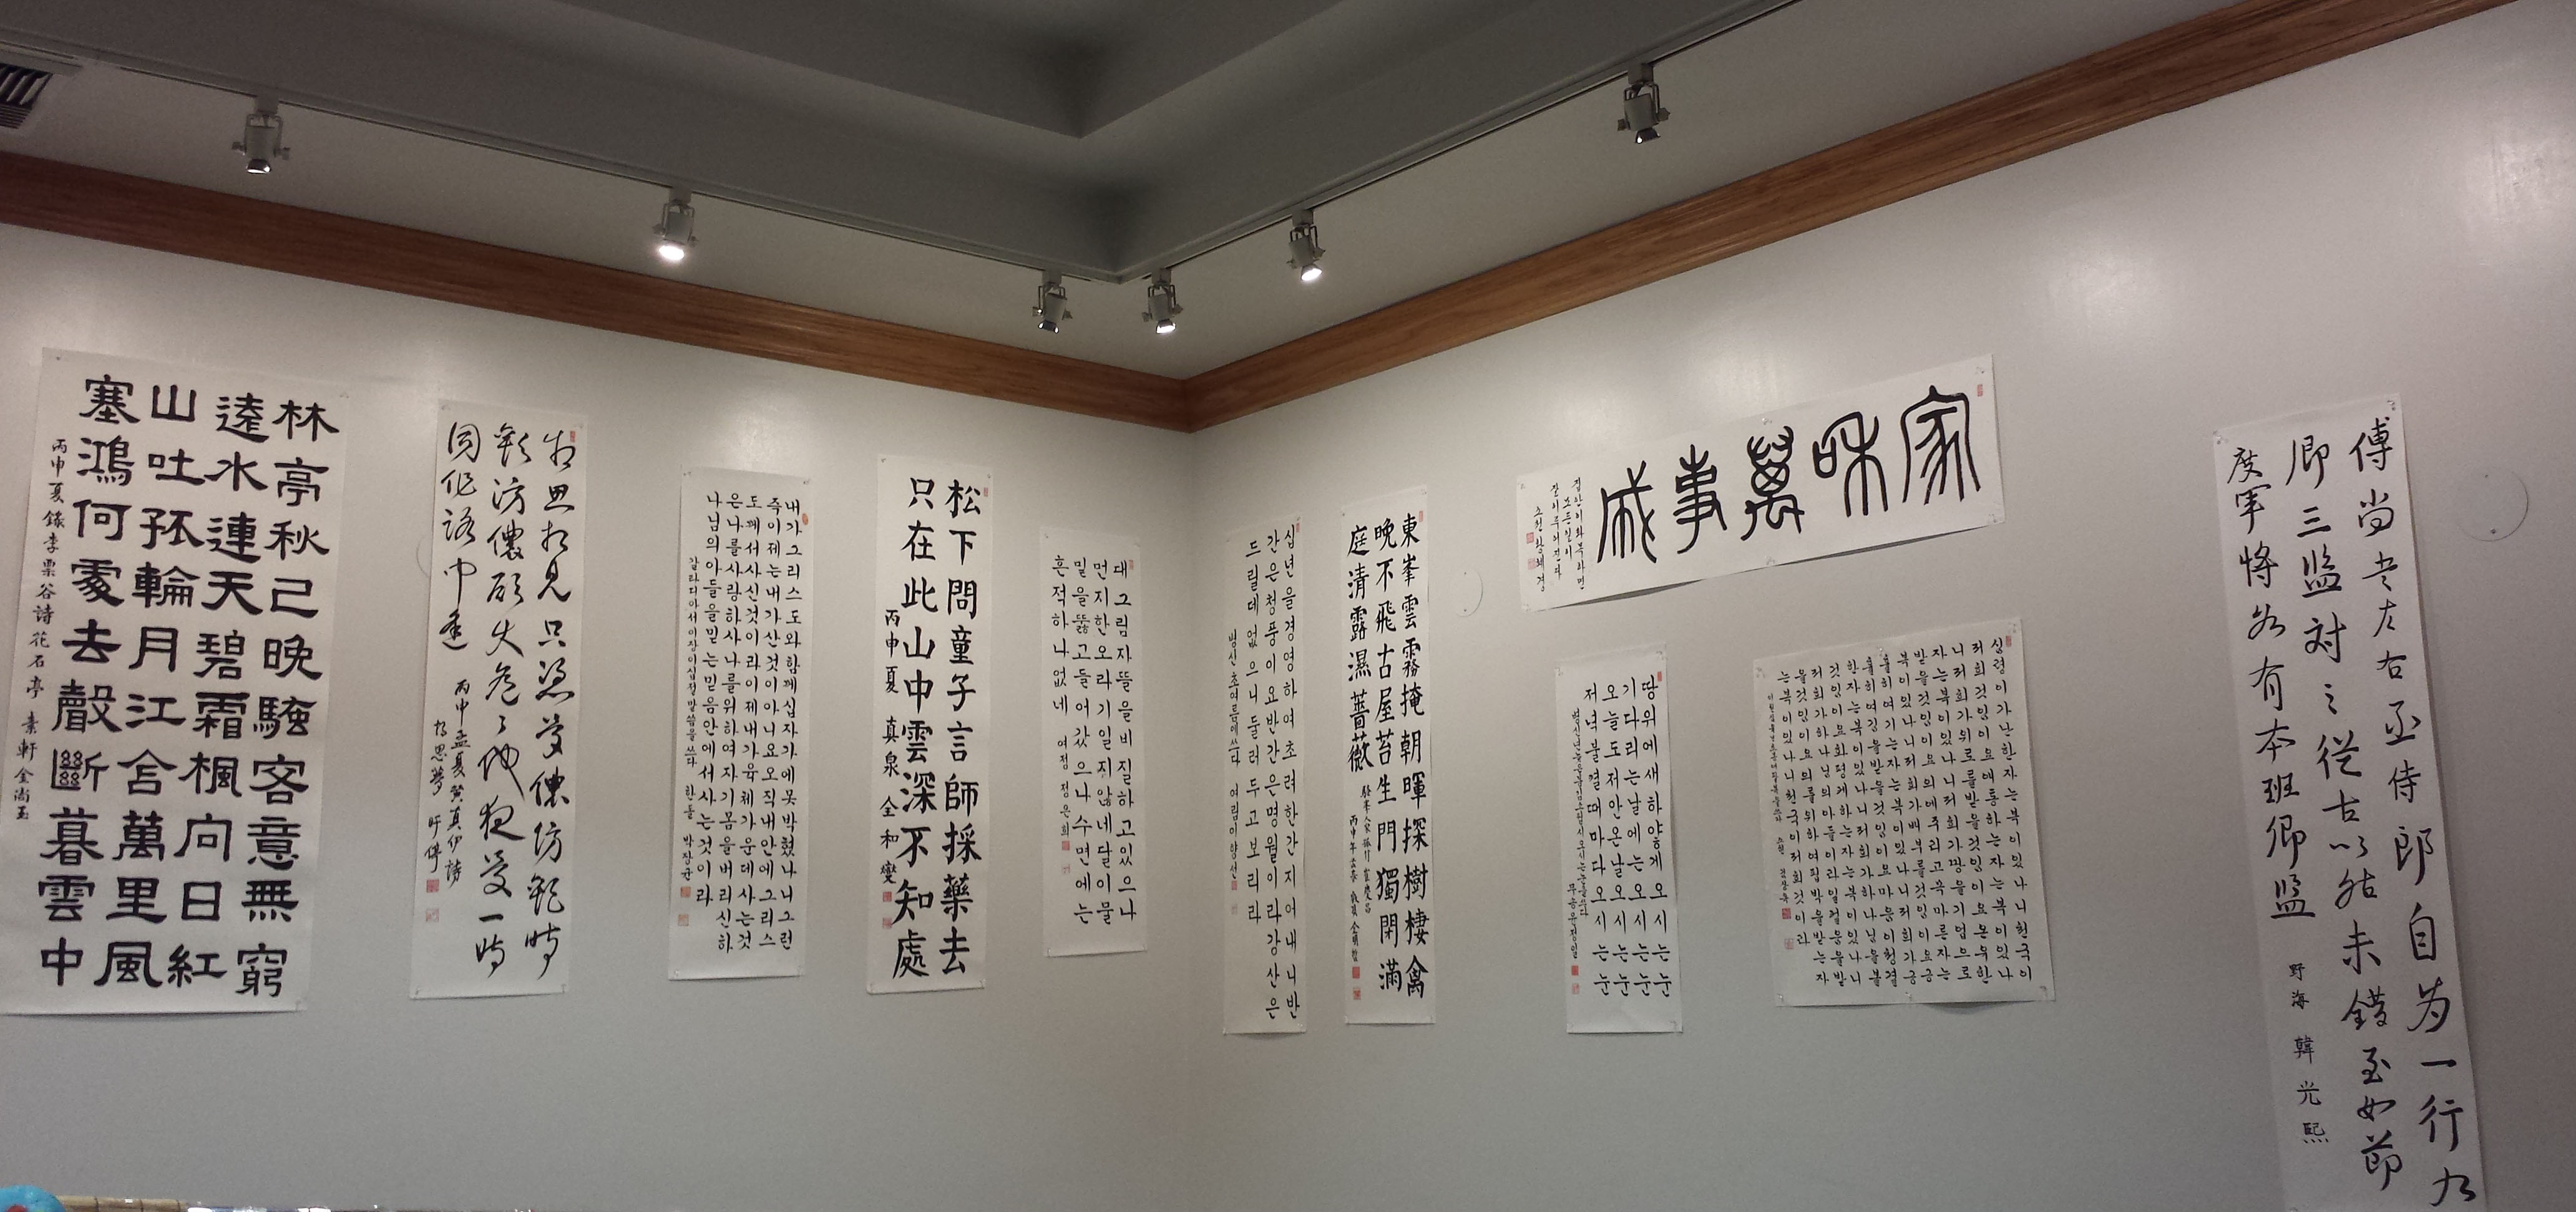 林亭秋已晚騷客意無窮
遠水連天碧霜楓向日紅
山吐孤輪月江含萬里風
塞鴻何處去聲斷暮雲中
丙申夏錄李栗谷詩花石亭 素軒 金尚玉
相思相見只憑夢儂訪歡時
歡訪儂願使遙遙他夜夢一時
同作路中逢
丙申孟夏黃真伊詩
相思夢
내가그리스도와함께십자가에못박혔나니그런
즉이제는내가산것이아니요오직내안에그리스
도께서사신것이라이제내가육체가운데사는것
은나를사랑하사나를위하여자기몸을버리신하
나님의아들을믿는믿음안에서사는것이라
갈라디아서이장이십절말씀을쓰다 한돌 박장균
松下問童子言師採藥去
只在此山中雲深不知處
丙申夏 真泉 全和燮
대그림자뜰을비질하고있으나
먼지한오라기일지않네달이물
밑을뚫고들어갔으나수면에는
흔적하나없네 여정 정은희
십년을경영하여초려한간지어내니반
간은청풍이요반간은명월이라강산은
드릴데없으니둘러두고보리라
병신초여름에쓰다 여림이양선
東峯雲霧掩朝暉探樹棲禽
晚不飛古屋苔生門獨閉滿
庭清露濕薔薇
家和萬事成
집안이화목하면
모든일이
잘이루어진다
땅위에새하얗게오시는눈
기다리는날에는오시는눈
오늘도저안온날오시는눈
저녁불켤때마다오시는눈
심령이가난한자는복이있나니천국이
저희것임이요애통하는자는복이있나
니저희가위로를받을것임이요온유한
자는복이있나니저희가땅을기업으로
받을것임이요의에주리고목마른자는
복이있나니저희가배부를것임이요긍
휼히여기는자는복이있나니저희가긍
휼히여김을받을것임이요마음이청결
한자는복이있나니저희가하나님을볼
것임이요화평케하는자는복이있나니
저희가하나님의아들이라일컬음을받
을것임이요의를위하여핍박을받는자
는복이있나니천국이저희것이라
傅尚書左右丞侍郎自為一行九
卿三監對之從古以然未錯至如節
度軍將各有本班卿監
野海 韓光熙